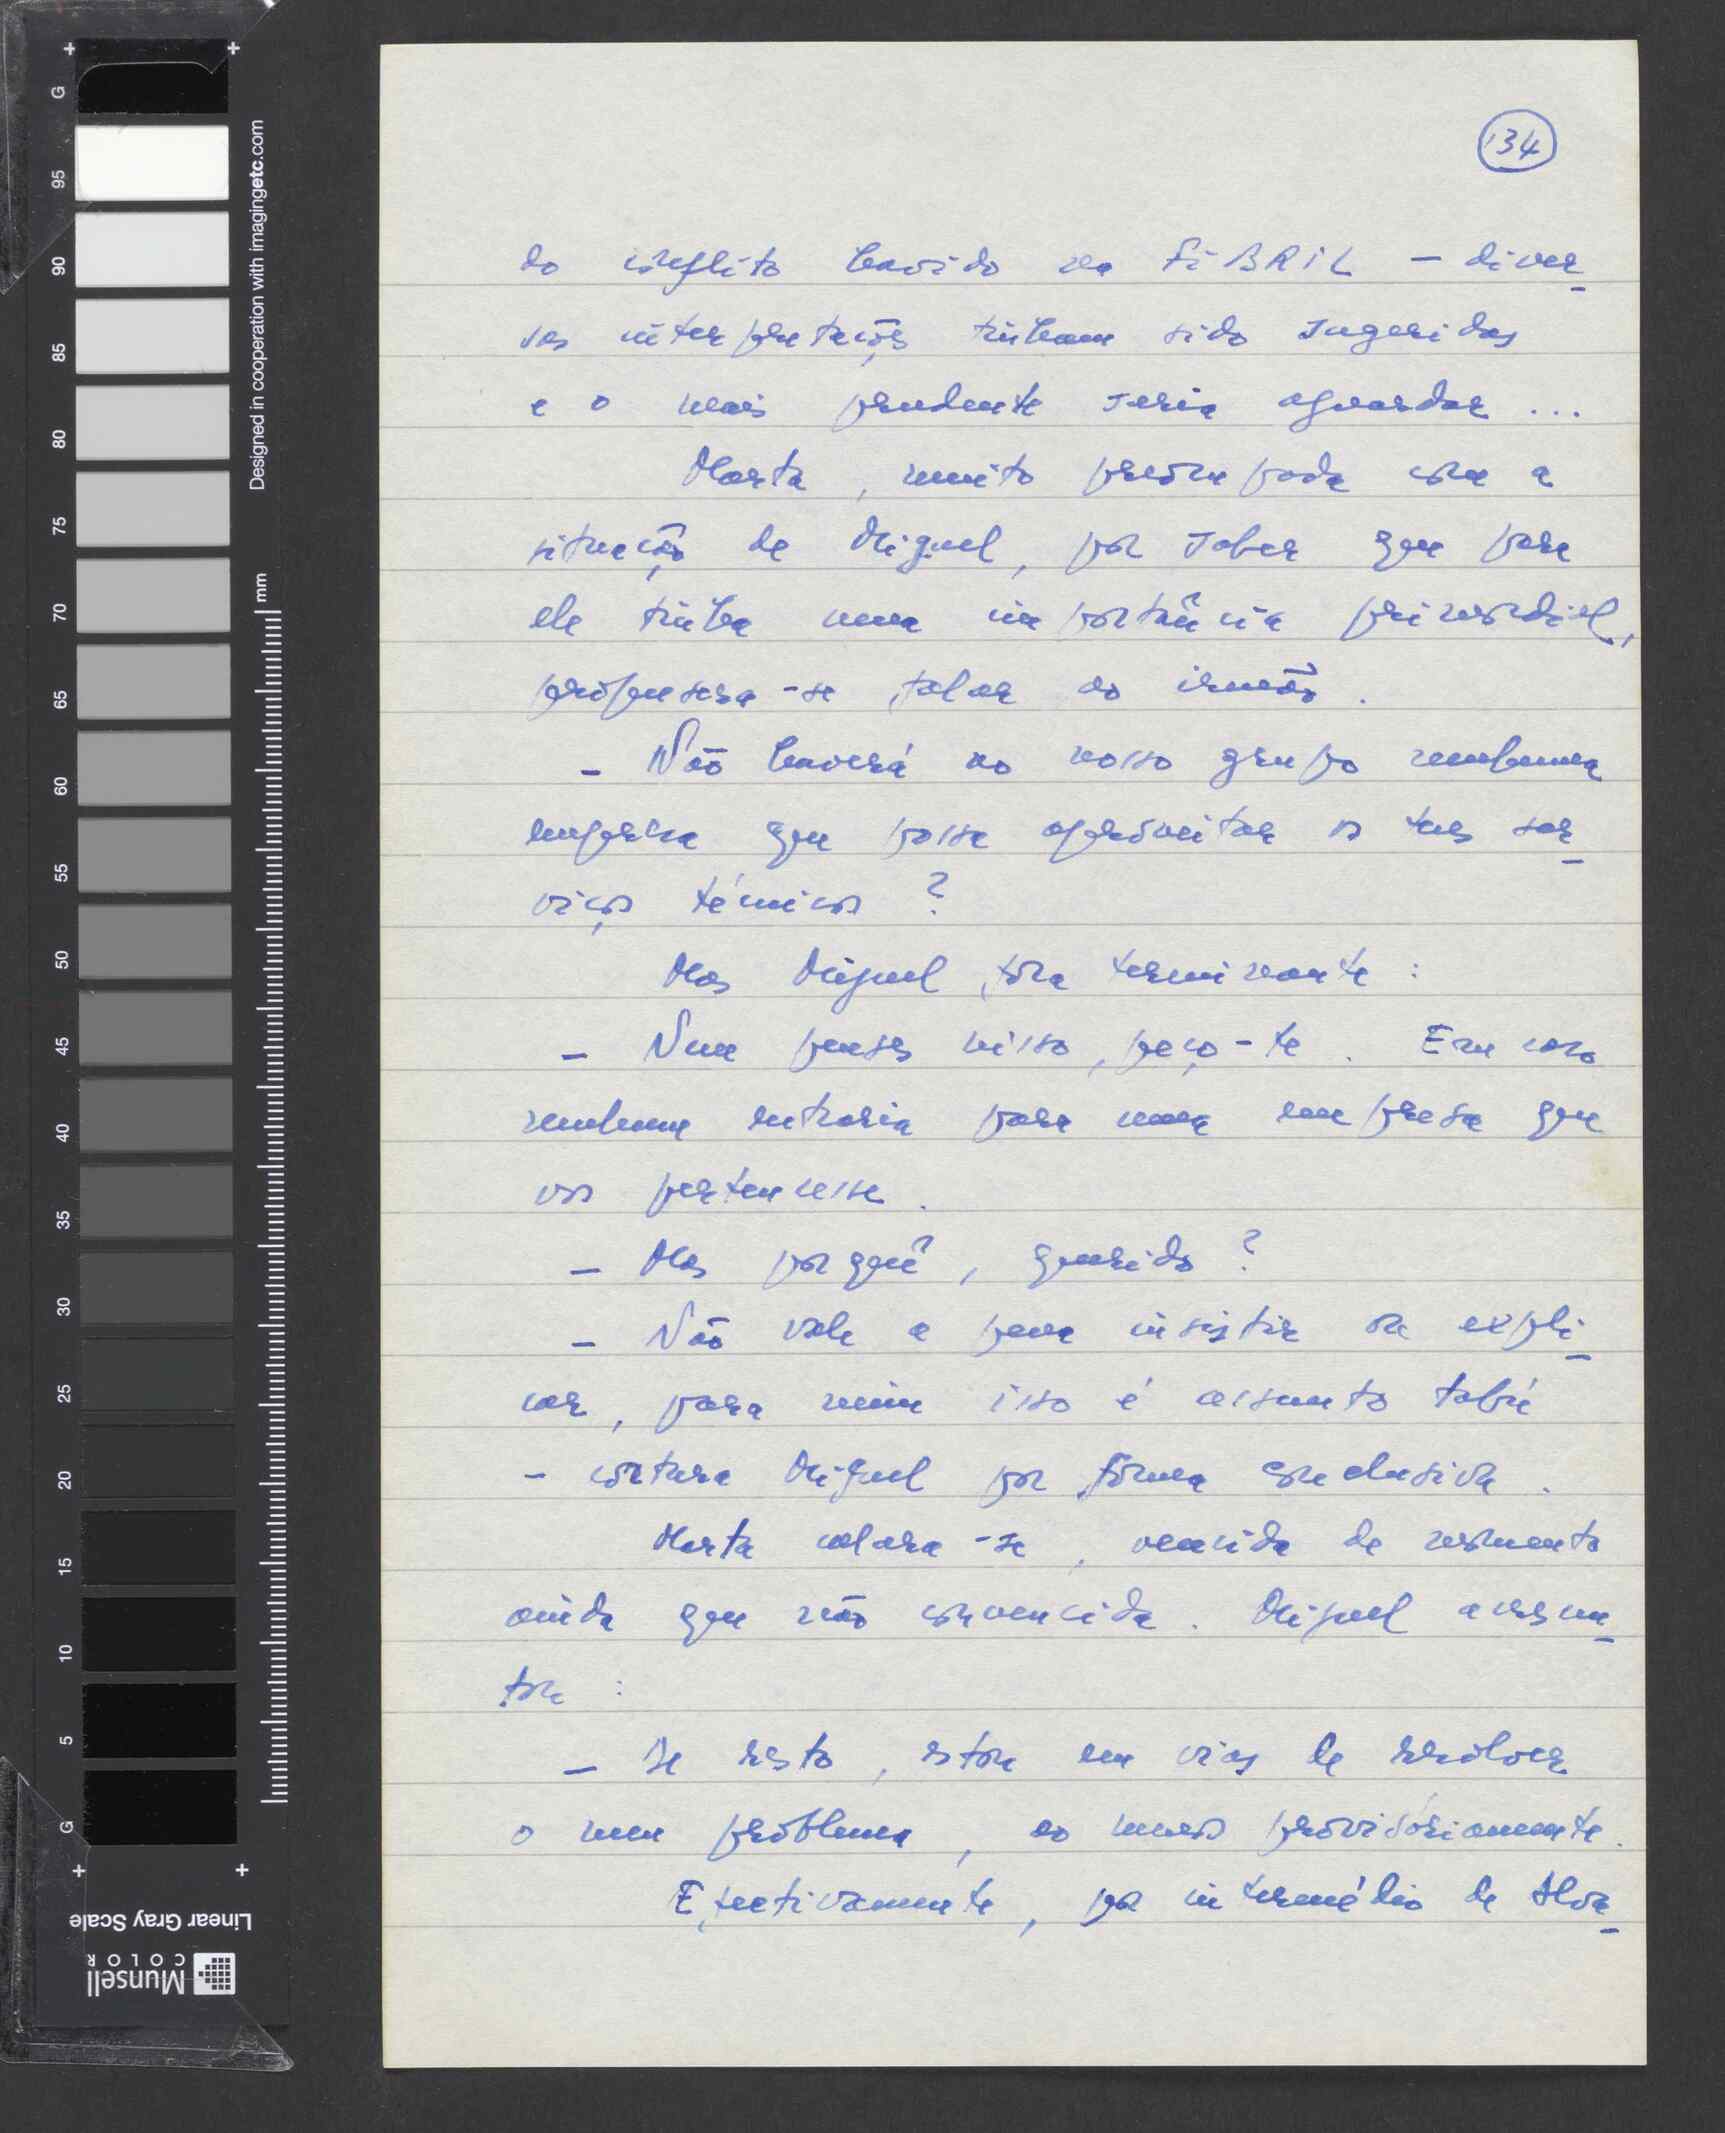 134
do conflito havido na FiBRiL - diver-
sas interpretações tinham sido sugeridas
e o mais prudente seria aguardar ...
Marta, muito preocupada com a
situação de Miguel, por saber que para
ele tinha uma importância primordial,
propusera-se falar ao irmão.
- Não haverá no vosso grupo nenhuma
empresa que possa aproveitar os teus ser-
viços técnicos?
Mas Miguel fora terminante:
- Nem penses nisso, peço-te. Em caso
nenhum entraria para uma empresa que
vos pertencesse.
- Mas porquê, querido?
- Não vale a pena insistir ou expli-
car, para mim isso é assunto tabú
- cortara Miguel por forma conclusiva.
Marta calara-se, vencida de momento
ainda que não convencida. Miguel acrescen-
tou:
- De resto, estou em vias de resolver
o meu problema, ao menos provisóriamente.
Efectivamente, por intermédio de Alva-
G
95
90
85
80
75
70
65
60
55
50
45
40
35
30
25
20
15
10
5
G
Designed in cooperation with imagingetc.com
mm
Linear Gray Scale
Munsell
COLOR